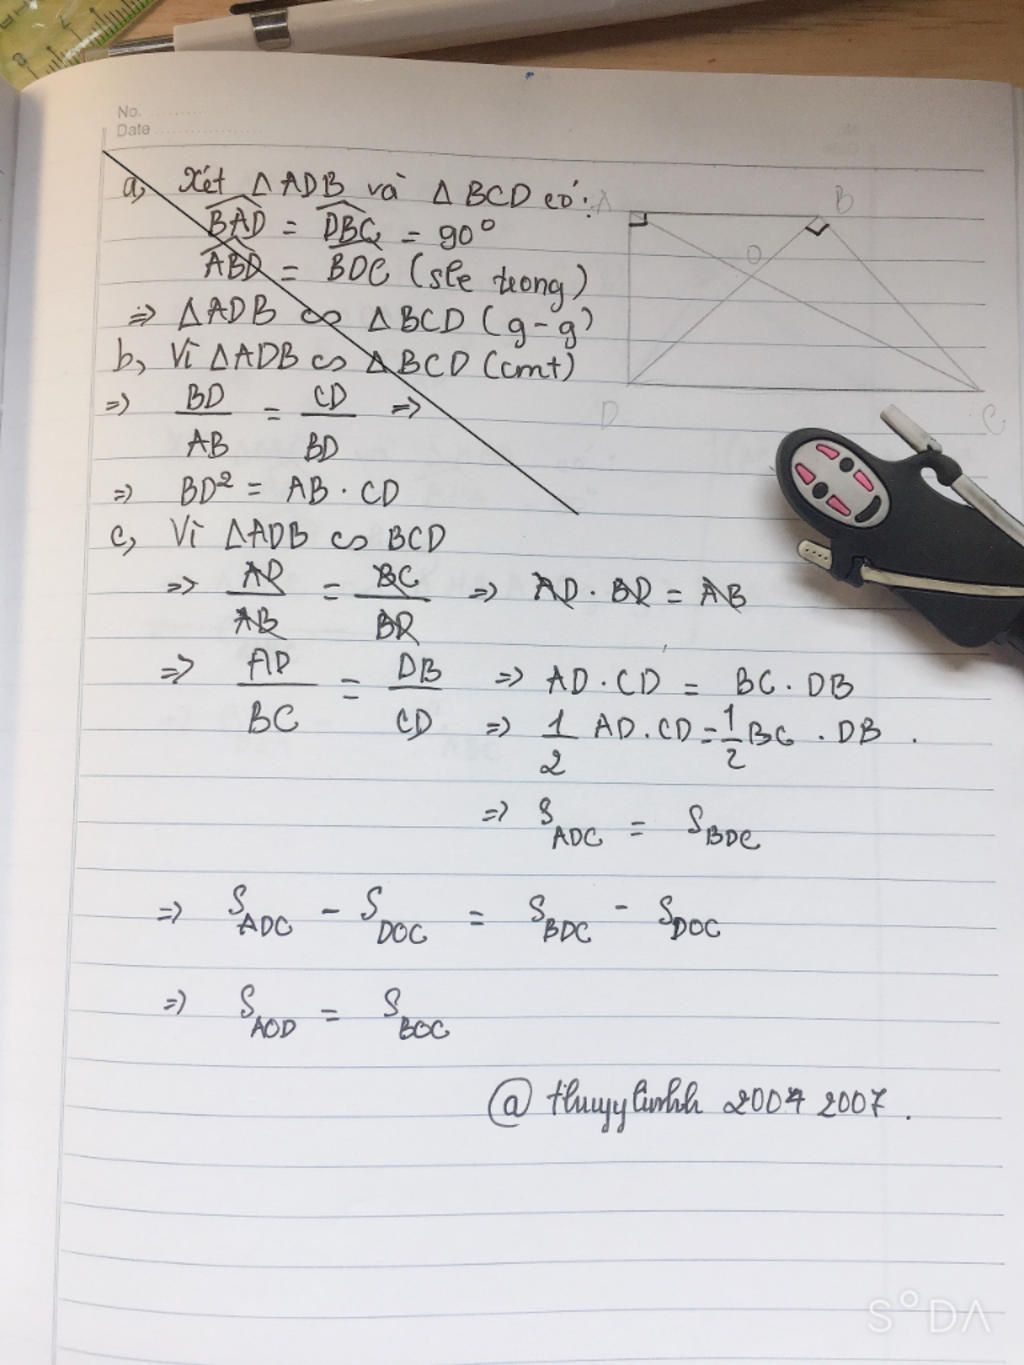 No.
Date
a, Xét △ADB và △BCD có:
BAD = DBC = 90°
ABD = BDC (sle trong)
=> △ADB ∽ △BCD (g-g)
b, Vì △ADB ∽ △BCD (cmt)
=> BD/AB = CD/BD =>
=> BD² = AB . CD
c, Vì △ADB ∽ BCD
=> AD/AB = BC/BD => AD . BD = AB
=> AD/BC = DB/CD => AD . CD = BC . DB
=> 1/2 AD . CD = 1/2 BC . DB .
=> S ADC = S BDC
=> S ADC - S DOC = S BDC - S DOC
=> S AOD = S BOC
@ thuyylinhh 2007 2007 .
A
B
O
D
C
SODA